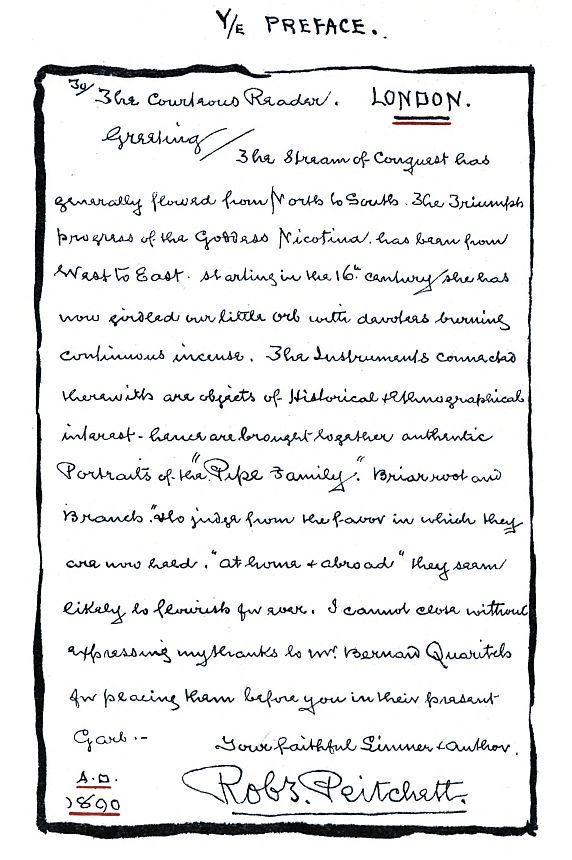 Y/E PREFACE.
To/ The Courteous Reader. LONDON.
Greeting/ The Stream of Conquest has
generally flowed from North to South. The Triumph
progress of the Goddess Nicotina. has been from
West to East. starting in the 16th century/she has
now girdled our little orb with devotees burning
continuous incense. The Instruments connected
therewith are objects of Historical & Ethnographical
interest - hence are brought together authentic
Portraits of the "Pipe Family." Briar root and
Branch. "& to judge from the favor in which they
are now held. "at home & abroad" they seem
likely to flourish for ever. I cannot close without
expressing my thanks to Mr. Bernard Quaritch
for placing them before you in their present
Garb.-
Your faithful Limner & author.
A.D.
1890
Robt. Pritchett.